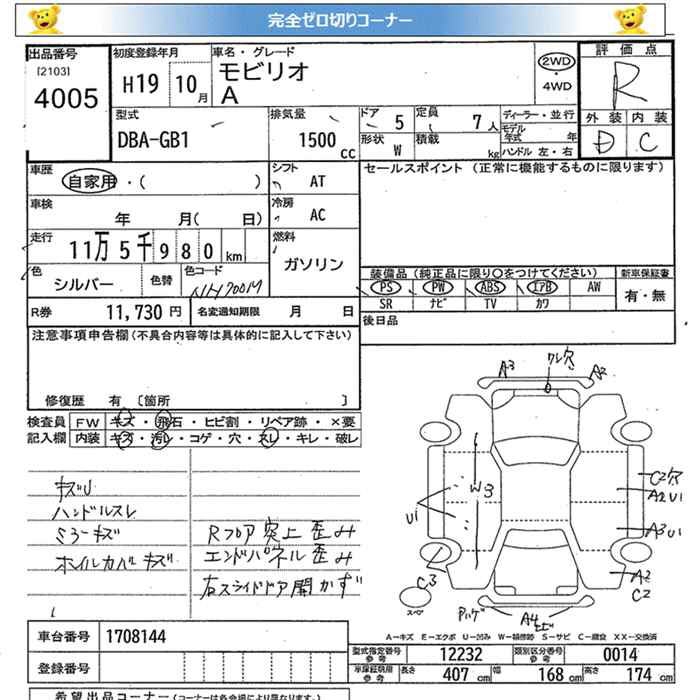 完全ゼロ切りコーナー
出品番号
[2103]
4005
初度登録年月
H19 10月
車名・グレード
モビリオ
A
2WD
・
4WD
評価点
R
外装 内装
D C
型式
DBA-GB1
排気量
1500 cc
ドア 5
形状 W
定員 7人
積載 kg
ディーラー・並行
モデル年式 年
ハンドル 左・右
車歴
自家用・( )
シフト
AT
セールスポイント (正常に機能するものに限ります)
車検
年 月( 日)
冷房
AC
走行
11万5千980km
燃料
ガソリン
色
シルバー
色替
色コード
NH700M
装備品(純正品に限り○をつけてください)
PS PW ABS エアB AW
SR ナビ TV カワ
新車保証書
有・無
R券 11,730円
名変通知期限 月 日
後日品
注意事項申告欄(不具合内容等は具体的に記入して下さい)
修復歴 有 [箇所 ]
検査員
記入欄
FW キズ・飛石・ヒビ割・リペア跡・×要
内装 キズ・汚レ・コゲ・穴・スレ・キレ・破レ
キズU
ハンドルスレ
ミラーキズ
ホイルカバーキズ
Rフロア突上歪み
エンドパネル歪み
右スライドドア開かず
A3 ワレ穴 A2
W3
U1
C2穴
A2 U1
A3 U1
A2
C2
C3
スペア
A4
A-キズ E-エクボ U-凹み W-補修跡 S-サビ C-腐食 XX-交換済
車台番号 1708144
登録番号
型式指定番号
参考
12232
類別区分番号
参考
0014
車検証既用
参考
長さ 407cm 幅 168cm 高さ 174cm
希望出品コーナー (コーナーは各会場により異なります。)